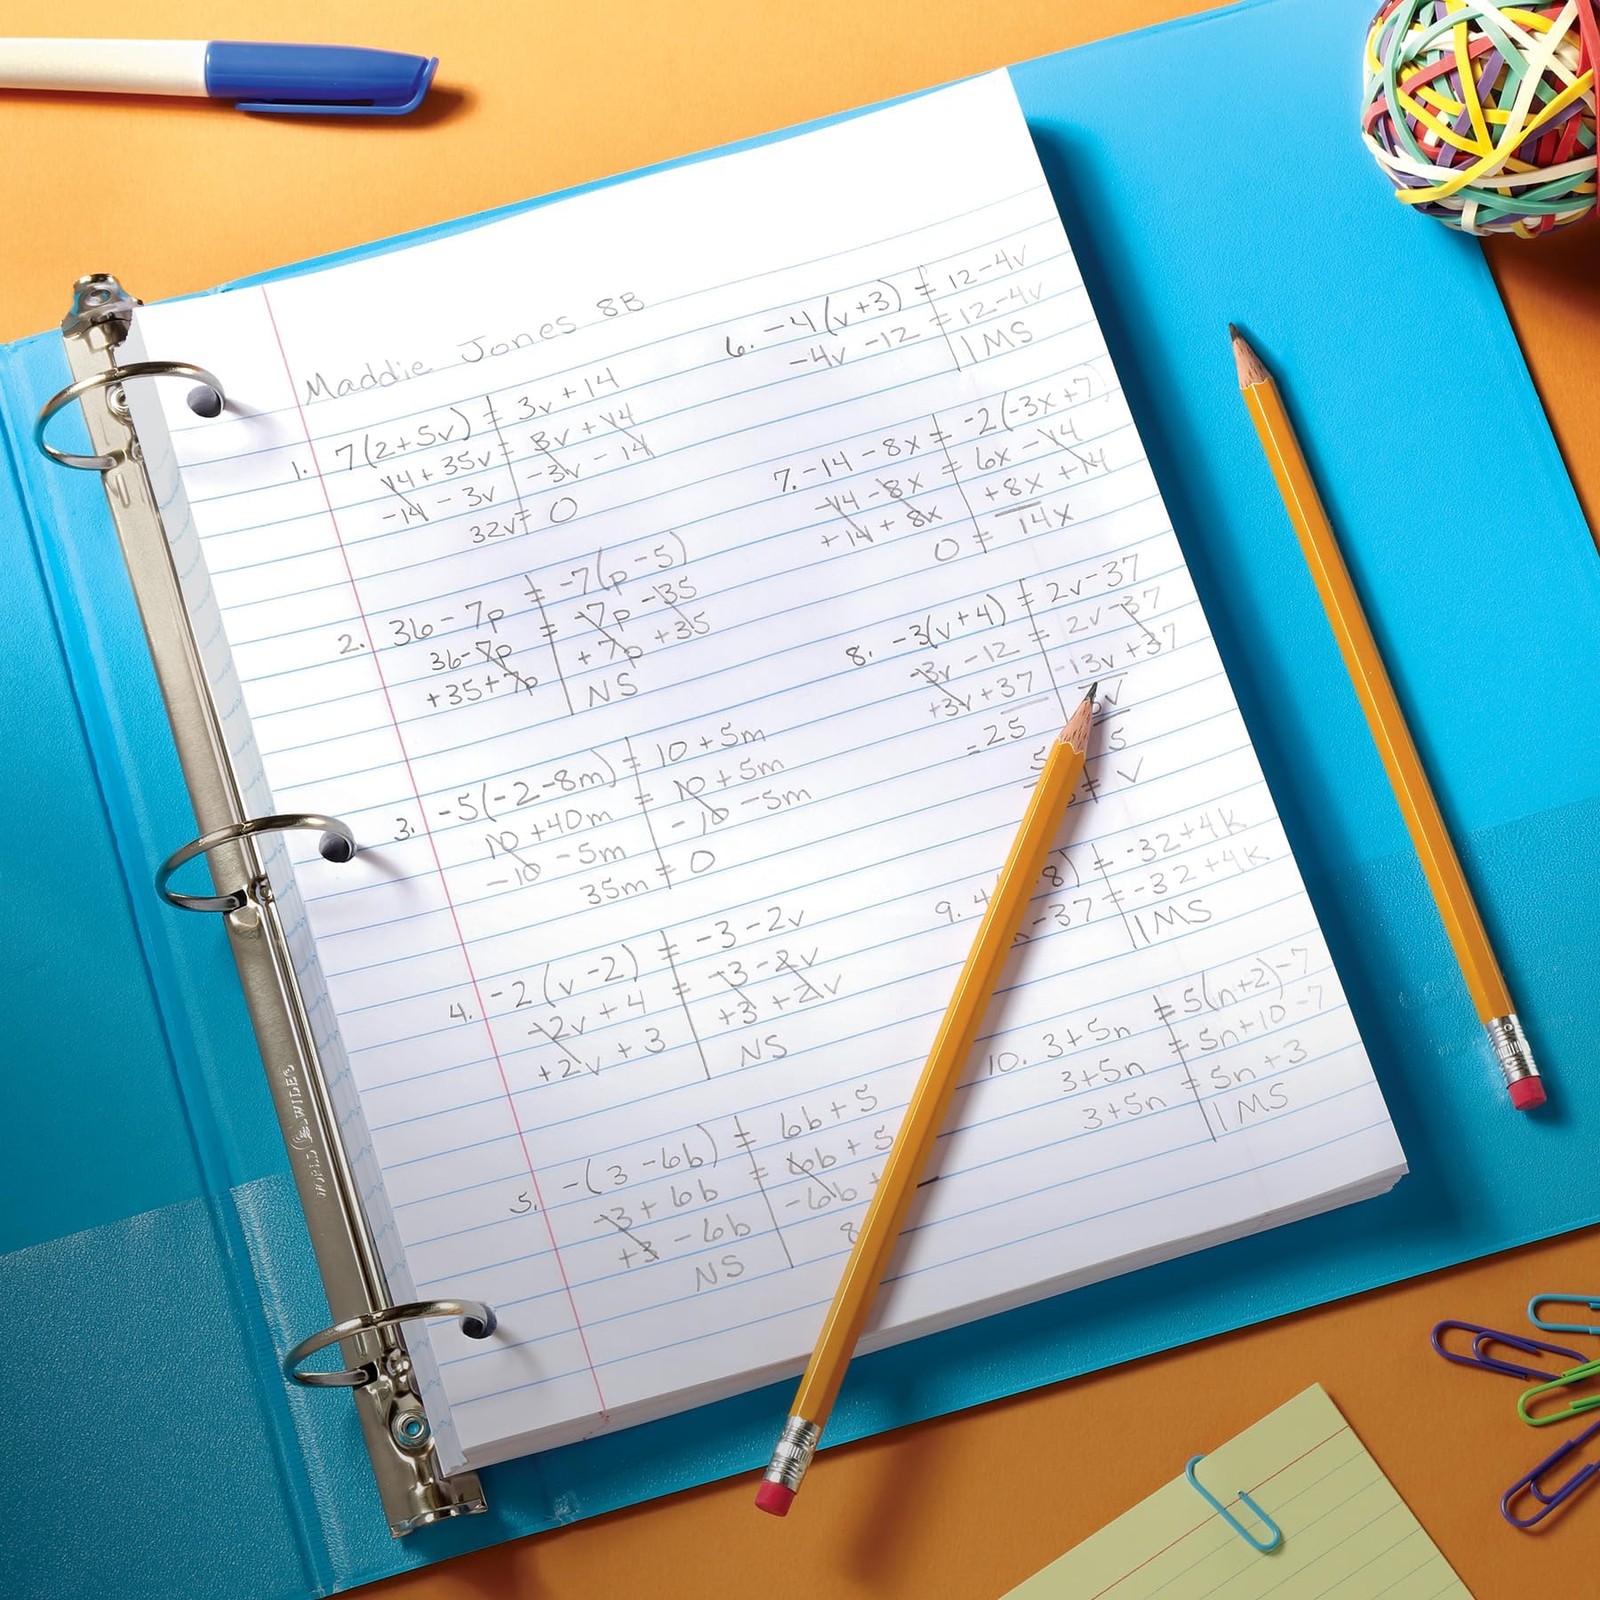 Maddie Jones 8B
1. 7(2+5v) = 3v + 14
14 + 35v = 3v + 14
-14 - 3v -3v - 14
32v = 0
2. 36 - 7p = -7(p - 5)
36 - 7p = -7p -35
+35 + 7p +7p +35
NS
3. -5(-2-8m) = 10 + 5m
10 + 40m = 10 + 5m
-10 - 5m -10 - 5m
35m = 0
4. -2(v - 2) = -3 - 2v
-2v + 4 = -3 - 2v
+2v + 3 +3 + 2v
NS
5. -(3 - 6b) = 6b + 5
-3 + 6b = 6b + 5
+3 - 6b -6b +
NS 8
6. -4(v+3) = 12 - 4v
-4v - 12 = 12 - 4v
IMS
7. -14 - 8x = -2(-3x + 7)
-14 - 8x = 6x - 14
+14 + 8x +8x +14
0 = 14x
8. -3(v + 4) = 2v - 37
-3v - 12 = 2v - 37
+3v + 37 -13v + 37
= 25 5v
5 5
= v
9. 4 8) = -32 + 4k
-37 = -32 + 4k
IMS
10. 3 + 5n = 5(n+2) - 7
3 + 5n = 5n + 10 - 7
3 + 5n = 5n + 3
IMS
WORLD WIDE